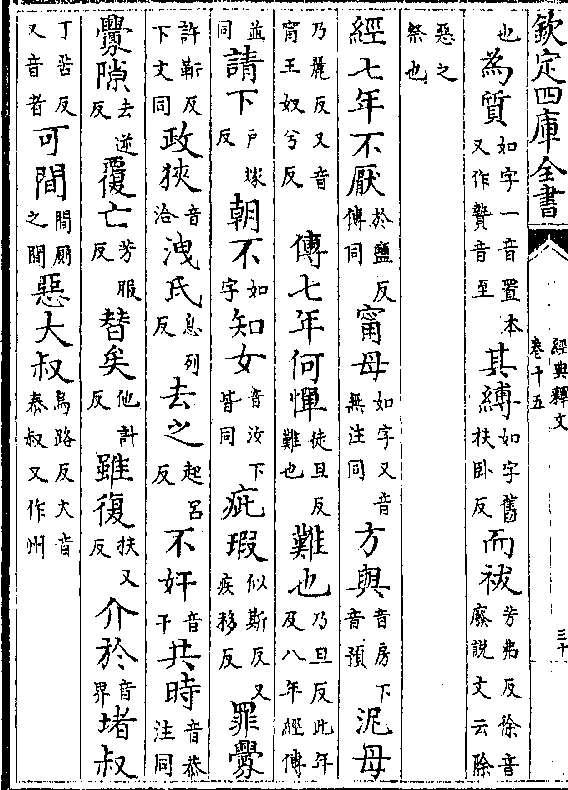 欽定四庫全書 經典釋文卷十五 三十
也 為質 如字一音置本又作贄音至 其縛 如字舊扶卧反 而祓 芳弗反徐音廢說文云除
惡之祭也
經七年不厭 於鹽反傳同 甯母 如字又音無注同 方與 音房下音預 泥母
乃麗反又音甯王奴兮反 傳七年何憚 徒旦反難也 難也 乃旦反此年及八年經傳
並同 請下 戶嫁反 朝不 如字 知女 音汝下皆同 疵瑕 似斯反又疾移反 罪釁
許靳反下文同 政狹 音洽 洩氏 息列反 去之 起呂反 不奸 音干 共時 音恭注同
釁隙 去逆反 覆亡 芳服反 替矣 他計反 雖復 扶又反 介於 音界 堵叔
丁古反又音者 可間 間厠之間 惡大叔 烏路反大音泰叔又作州